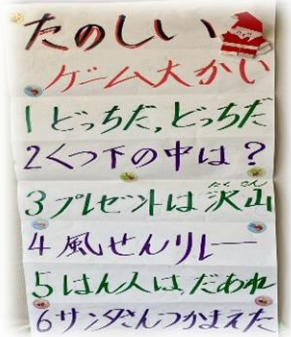 たのしい
ゲーム大かい
1 どっちだ,どっちだ
2 くつ下の中は?
たくさん
3 プレゼントは沢山
4 風せんリレー
5 はん人は,だあれ
6 サンタさんつかまえた